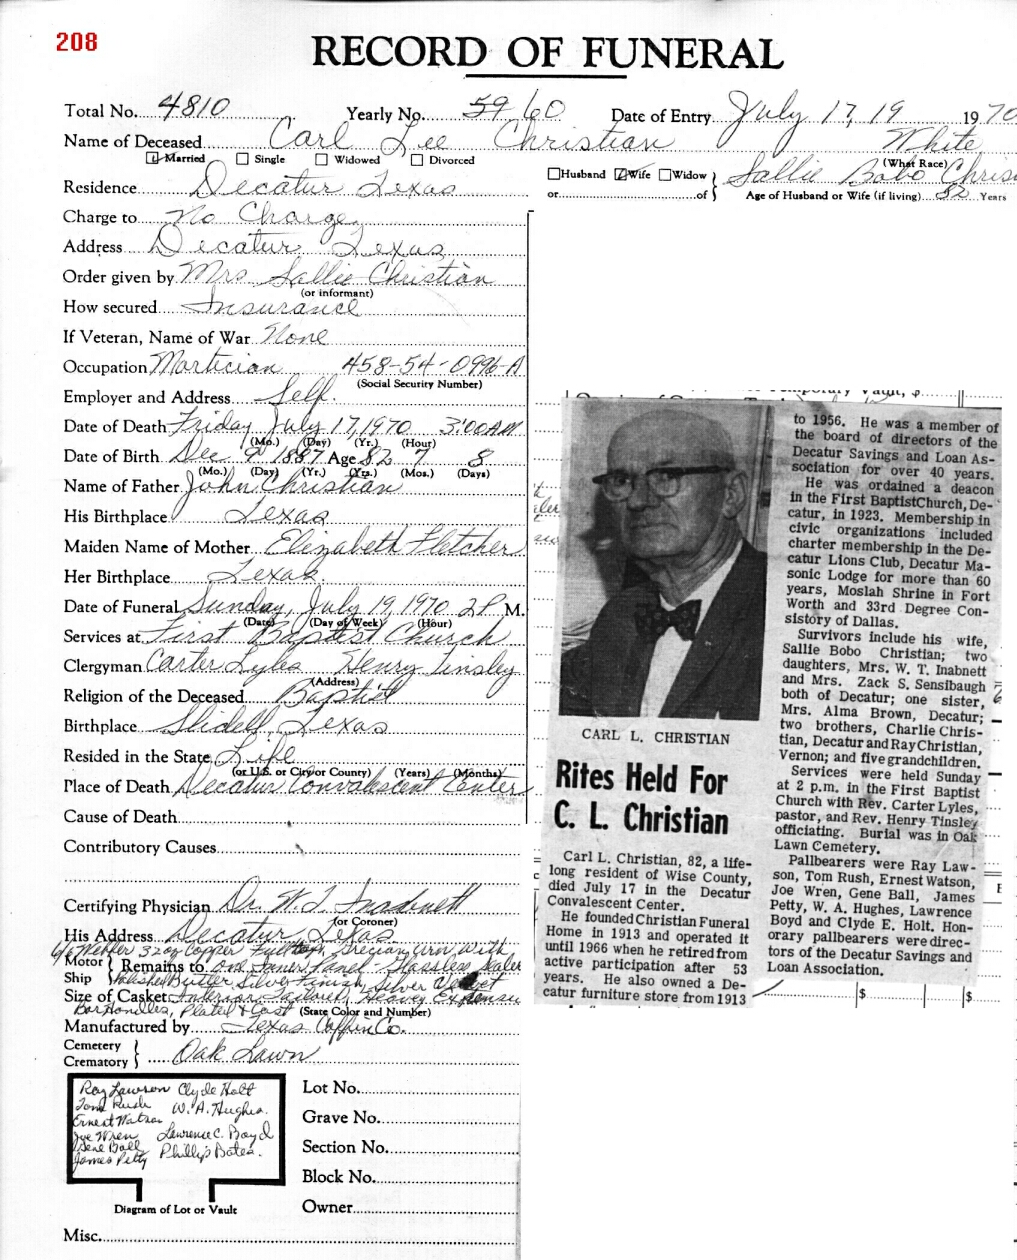 208
RECORD OF FUNERAL
Total No. 4810 Yearly No. 59 60 Date of Entry July 17, 19 1970
Name of Deceased Carl Lee Christian White
Married Single Widowed Divorced (What Race)
Residence Decatur Texas
Husband Wife Widow Sallie Bobo Chris
or of Age of Husband or Wife (if living) 82 Years
Charge to No Charge
Address Decatur Texas
Order given by Mrs Sallie Christian
(or informant)
How secured Insurance
If Veteran, Name of War None
Occupation Mortician 458-54-0996-A
(Social Security Number)
Employer and Address Self.
Date of Death Friday July 17, 1970 3:00 AM
(Mo.) (Day) (Yr.) (Hour)
Date of Birth Dec 9 1887 Age 82 7 8
(Mo.) (Day) (Yr.) (Yrs.) (Mos.) (Days)
Name of Father John Christian
His Birthplace Texas
Maiden Name of Mother Elizabeth Fletcher
Her Birthplace Texas.
Date of Funeral Sunday, July 19, 1970 2 P M.
(Date) (Day of Week) (Hour)
Services at First Baptist Church
Clergyman Carter Lyles Henry Tinsley
(Address)
Religion of the Deceased Baptist
Birthplace Slidell, Texas
Resided in the State Life
(or U.S. or City or County) (Years) (Months)
Place of Death Decatur Convalescent Center
Cause of Death
Contributory Causes
Certifying Physician Dr. W. T. Inabnett
(or Coroner)
His Address Decatur Texas
32 oz Copper Full Grecian Urn With
Motor Remains to One Inner Panel - Glassless Sealer
Ship Butler Silver Finish, Silver Velvet
Size of Casket Interior Tailored, Heavy
Bar Handles, Plated & Cast (State Color and Number)
Manufactured by Texas Coffin Co.
Cemetery
Crematory Oak Lawn
Ray Lawson Clyde Holt
Tom Rush W. A. Hughes.
Ernest Watson
Joe Wren Lawrence C. Boyd
Gene Ball Phillip Bates.
James Petty
Diagram of Lot or Vault
Lot No.
Grave No.
Section No.
Block No.
Owner
Misc.
CARL L. CHRISTIAN
Rites Held For
C. L. Christian
Carl L. Christian, 82, a life-
long resident of Wise County,
died July 17 in the Decatur
Convalescent Center.
He founded Christian Funeral
Home in 1913 and operated it
until 1966 when he retired from
active participation after 53
years. He also owned a De-
catur furniture store from 1913
to 1956. He was a member of
the board of directors of the
Decatur Savings and Loan As-
sociation for over 40 years.
He was ordained a deacon
in the First BaptistChurch, De-
catur, in 1923. Membership in
civic organizations included
charter membership in the De-
catur Lions Club, Decatur Ma-
sonic Lodge for more than 60
years, Moslah Shrine in Fort
Worth and 33rd Degree Con-
sistory of Dallas.
Survivors include his wife,
Sallie Bobo Christian; two
daughters, Mrs. W. T. Inabnett
and Mrs. Zack S. Sensibaugh
both of Decatur; one sister,
Mrs. Alma Brown, Decatur;
two brothers, Charlie Chris-
tian, Decatur and Ray Christian,
Vernon; and five grandchildren.
Services were held Sunday
at 2 p.m. in the First Baptist
Church with Rev. Carter Lyles,
pastor, and Rev. Henry Tinsley
officiating. Burial was in Oak
Lawn Cemetery.
Pallbearers were Ray Law-
son, Tom Rush, Ernest Watson,
Joe Wren, Gene Ball, James
Petty, W. A. Hughes, Lawrence
Boyd and Clyde E. Holt. Hon-
orary pallbearers were direc-
tors of the Decatur Savings and
Loan Association.
$ $